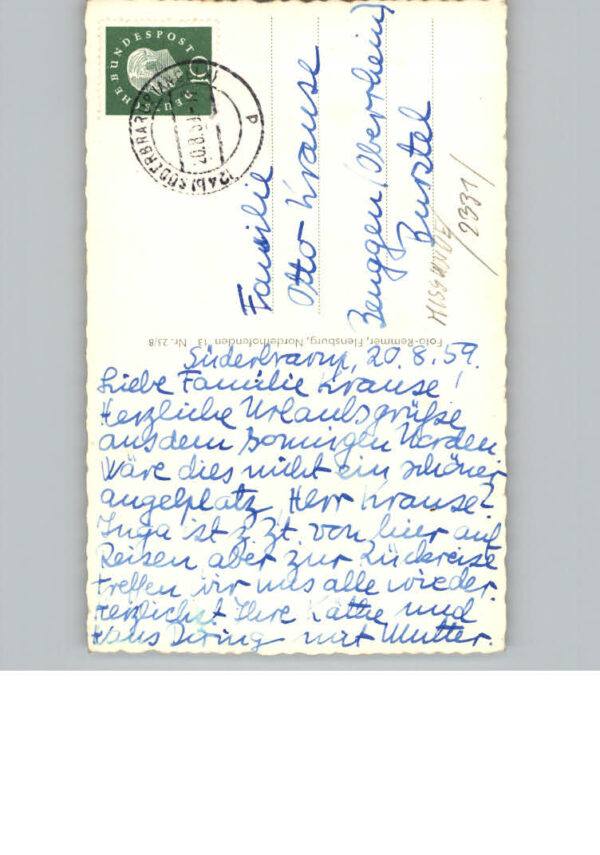 DEUTSCHE BUNDESPOST
10
(24b) SÜDERBRARUP
20.8.59
d
Familie
Otto Krause
Beuggen (Oberrhein)
Bürstel
MISSUNDE
2331
Foto-Remmer, Flensburg, Norderhofenden 13 Nr. 23/8
Süderbrarup, 20.8.59.
Liebe Familie Krause!
Herzliche Urlaubsgrüße
aus dem sonnigen Norden.
Wäre dies nicht ein schöner
angelplatz, Herr Krause?
Inga ist z. Zt. von hier auf
Reisen aber zur Rückreise
treffen wir uns alle wieder.
Herzlichst Ihre Käthe und
Hans Döring mit Mutter.